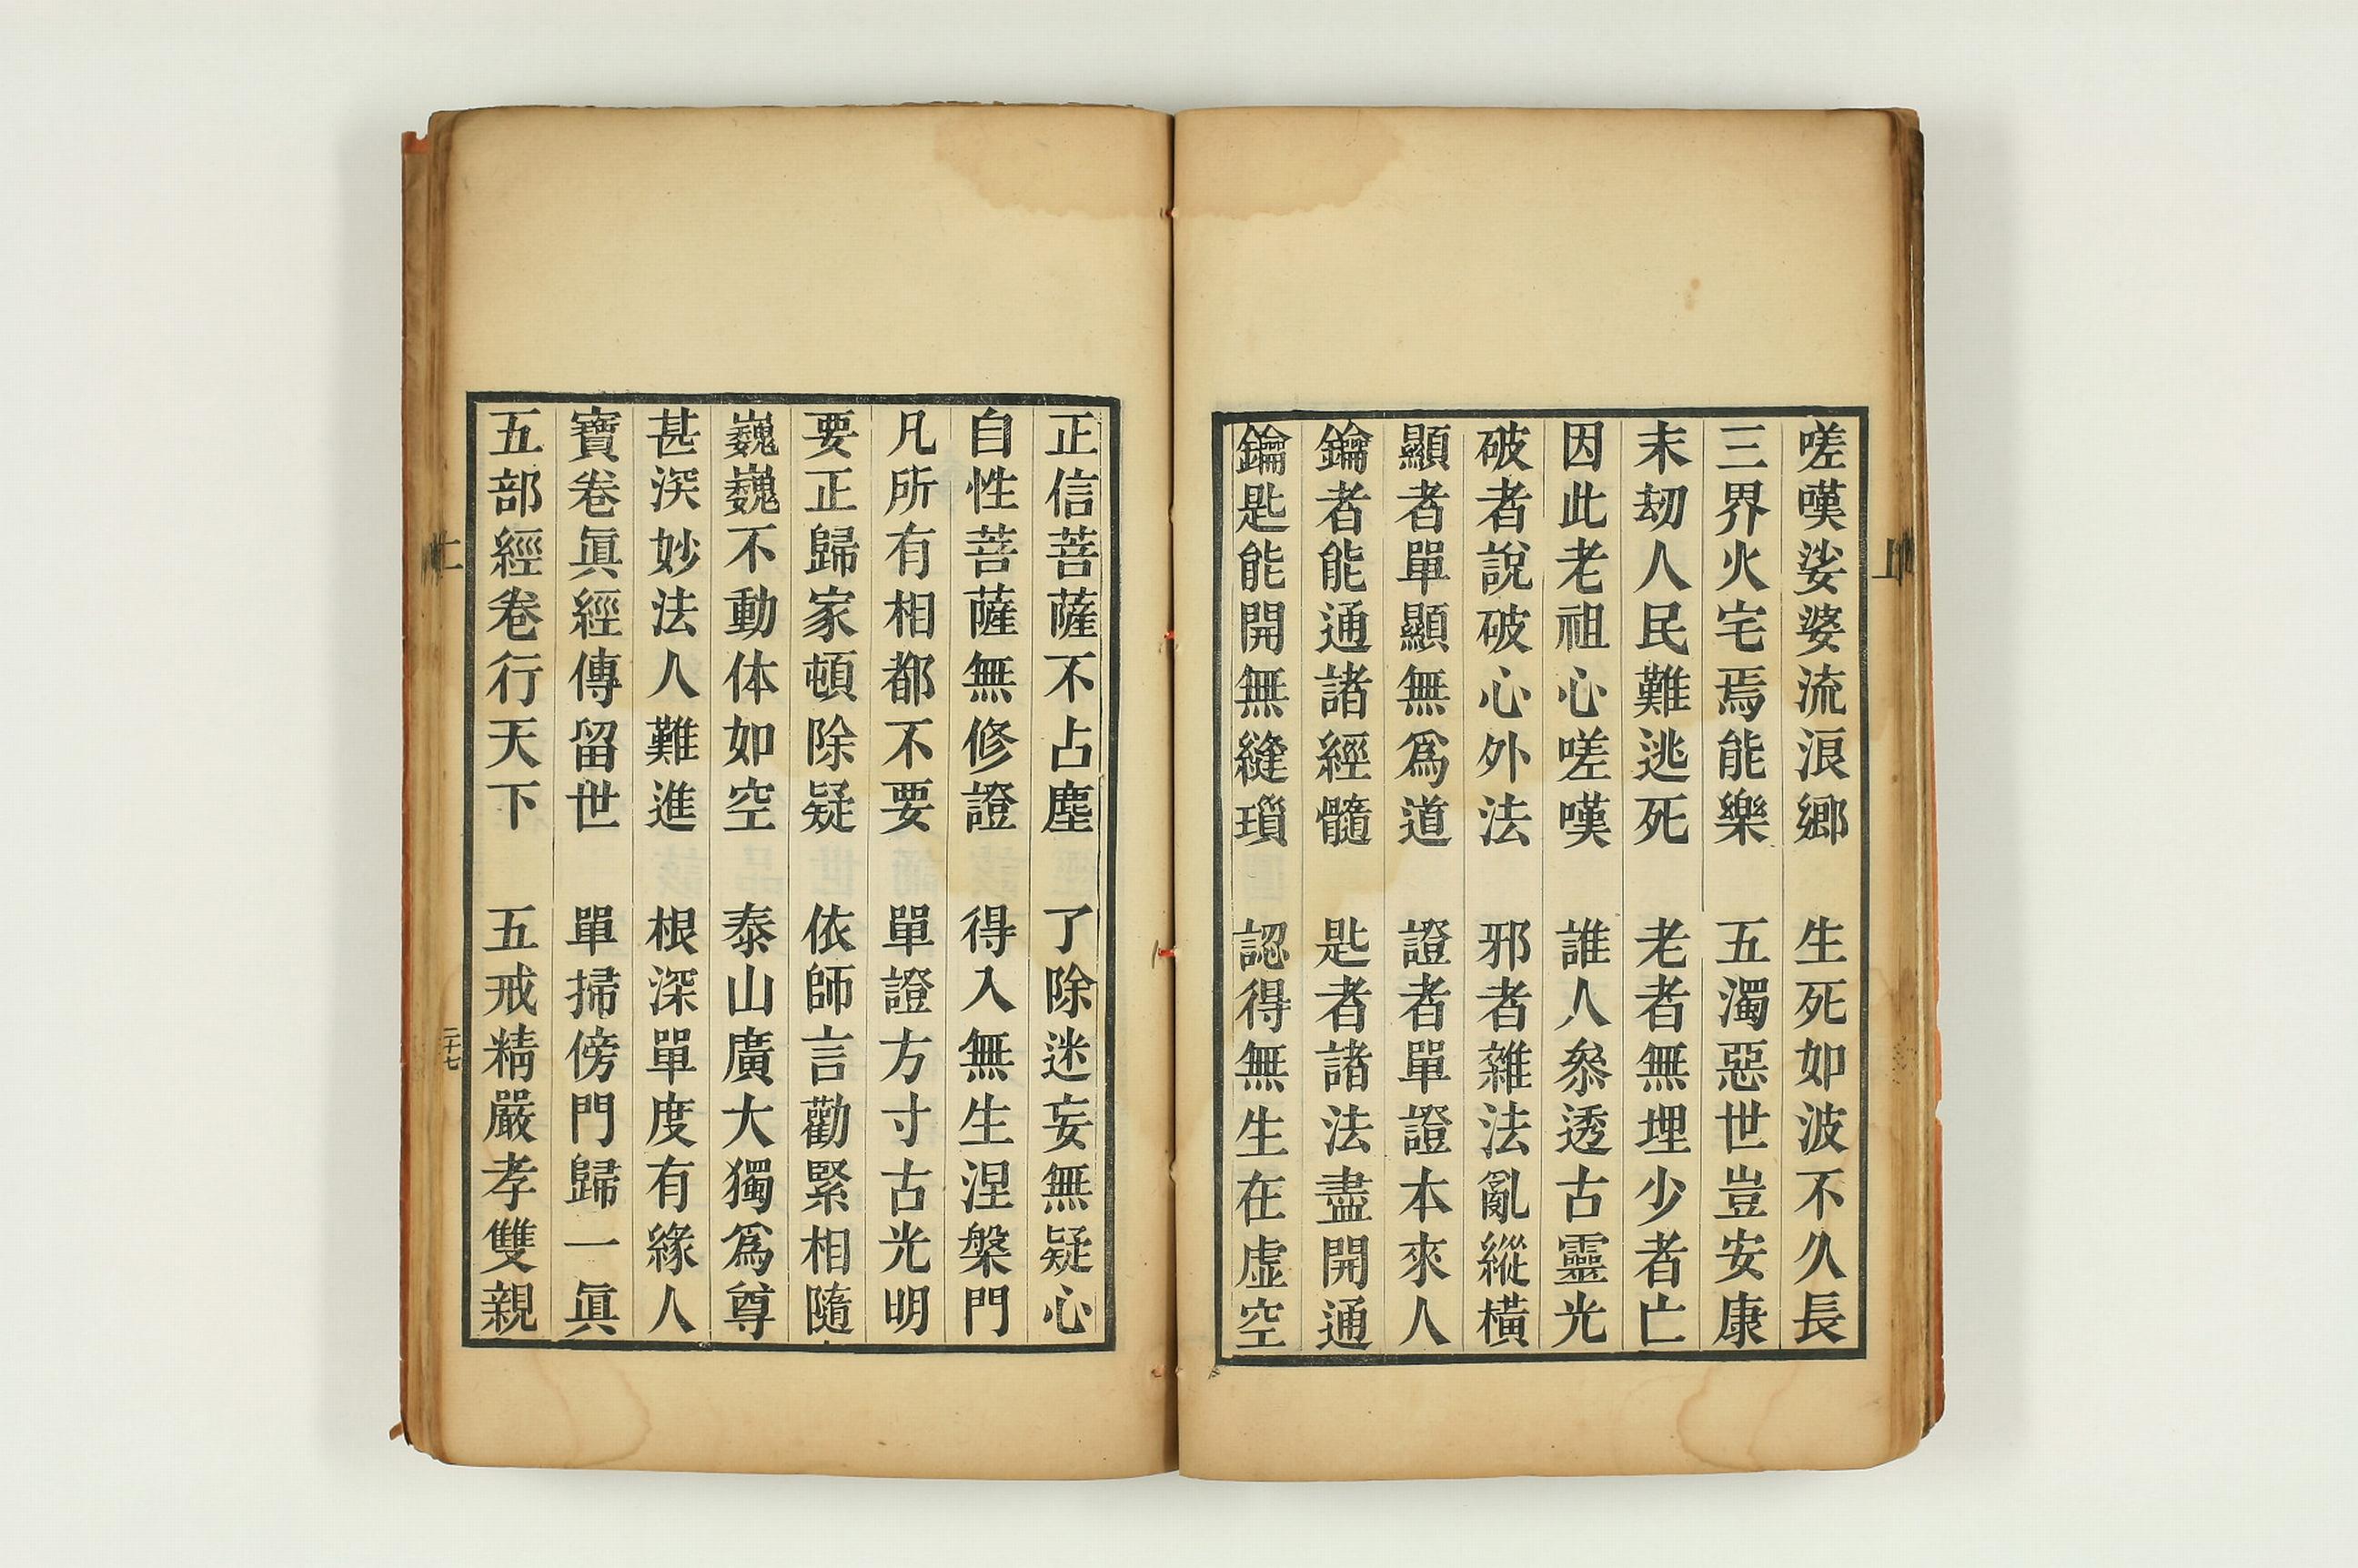 嗟嘆娑婆流浪鄉　生死如波不久長
三界火宅焉能樂　五濁惡世豈安康
末刼人民難逃死　老者無埋少者亡
因此老祖心嗟嘆　誰人叅透古靈光
破者說破心外法　邪者雜法亂縱橫
顯者單顯無爲道　證者單證本來人
鑰者能通諸經髓　匙者諸法盡開通
鑰匙能開無縫瑣　認得無生在虛空
正信菩薩不占塵　了除迷妄無疑心
自性菩薩無修證　得入無生涅槃門
凡所有相都不要　單證方寸古光明
要正歸家頓除疑　依師言勸緊相隨
巍巍不動体如空　泰山廣大獨爲尊
甚深妙法人難進　根深單度有緣人
寶卷眞經傳留世　單掃傍門歸一眞
五部經卷行天下　五戒精嚴孝雙親
二十七